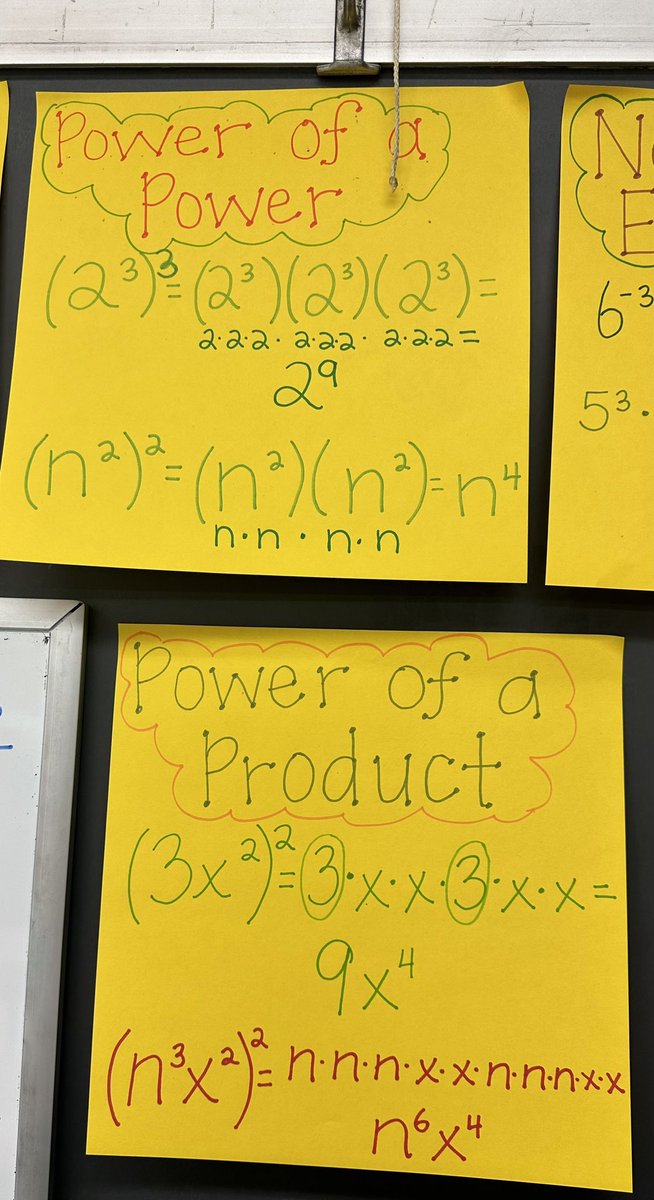 Power of a
Power
(2³)³ = (2³)(2³)(2³) =
2·2·2 · 2·2·2 · 2·2·2 =
2⁹
(n²)² = (n²)(n²) = n⁴
n·n · n·n
6⁻³
5³ ·
Power of a
Product
(3x²)² = 3·x·x·3·x·x =
9x⁴
(n³x²)² = n·n·n·x·x·n·n·n·x·x
n⁶x⁴